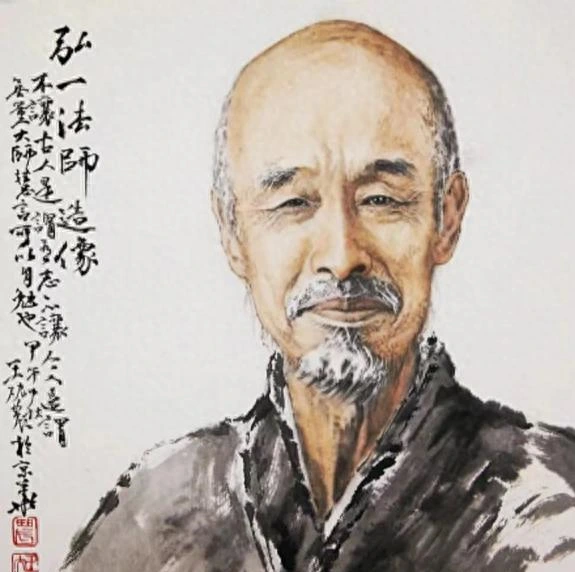 弘一法師造像
不讓古人是謂有志不讓今人是謂
無量大師慧言可以自勉也甲午
王硯農於京華